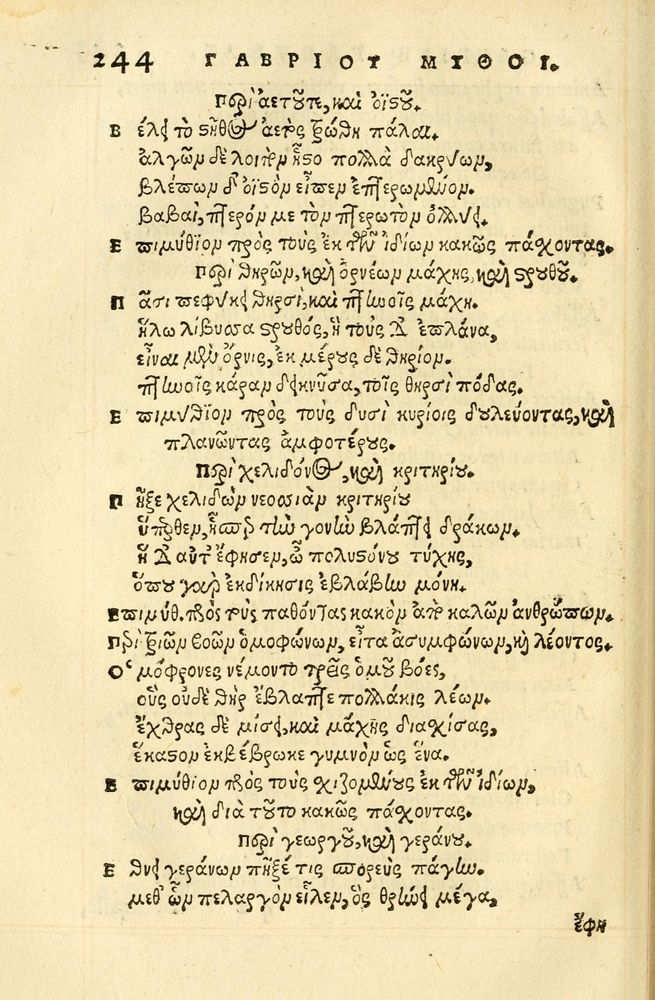 244 ΓΑΒΡΙΟΥ ΜΥΘΟΙ.
Περὶ ἀετοῦ τε, καὶ ὀϊστοῦ.
Βέλει τὸ στῆθος ἀετὸς ἐτρώθη πάλαι.
ἀλγῶν δὲ λοιπὸν ἧστο πολλὰ δακρύων,
βλέπων δ' ὀϊστὸν εἶπεν ἐπτερωμένον.
βαβαὶ, πτερόν με τὸν πτερωτὸν ὀλλύει.
Ἐπιμύθιον πρὸς τοὺς ἐκ τῶν ἰδίων κακῶς πάσχοντας.
Περὶ θηρῶν, καὶ ὀρνέων μάχης, καὶ στρουθοῦ.
Πᾶσι πεφύκει θηρσὶ, καὶ πτηνοῖς μάχη.
ἥλω λίβυσσα στρουθός, ἣ τοὺς δ' ἐπλάνα,
εἶναι μὲν ὄρνις, ἐκ μέρους δὲ θηρίον.
πτηνοῖς κάραν δεικνῦσα, τοῖς θηρσὶ πόδας.
Ἐπιμύθιον πρὸς τοὺς δυσὶ κυρίοις δουλεύοντας, καὶ
πλανῶντας ἀμφοτέρους.
Περὶ χελιδόνος, καὶ κριτηρίου.
Πῆξε χελιδὼν νεοσσιὰν κριτηρίου
ὕπερθεν, ἧσπερ τὴν γονὴν βλάπτει δράκων.
ἡ δ' αὖτ' ἔφησεν, ὦ πολυστόνου τύχης,
ὅπου γὰρ ἐκδίκησις ἐβλάβην μόνη.
Ἐπιμύθ. πρὸς τοὺς παθόντας κακὸν ἀπὸ καλῶν ἀνθρώπων.
Περὶ τριῶν βοῶν ὁμοφώνων, εἶτα ἀσυμφώνων, καὶ λέοντος.
Ὁμόφρονες νέμοντο τρεῖς ὁμοῦ βόες,
οὓς οὐδὲ θὴρ ἔβλαπτε πολλάκις λέων.
ἔχθρας δὲ μίσει, καὶ μάχης διασχίσας,
ἕκαστον ἐκβέβρωκε γυμνὸν ὡς ἕνα.
Ἐπιμύθιον πρὸς τοὺς σχιζομένους ἐκ τῶν ἰδίων,
καὶ διὰ τοῦτο κακῶς πάσχοντας.
Περὶ γεωργοῦ, καὶ γεράνου.
Ἔθνει γεράνων πῆξέ τις σπορεὺς πάγην.
μεθ' ὧν πελαργὸν εἷλεν, ὃς θρηνεῖ μέγα,
ἔφη